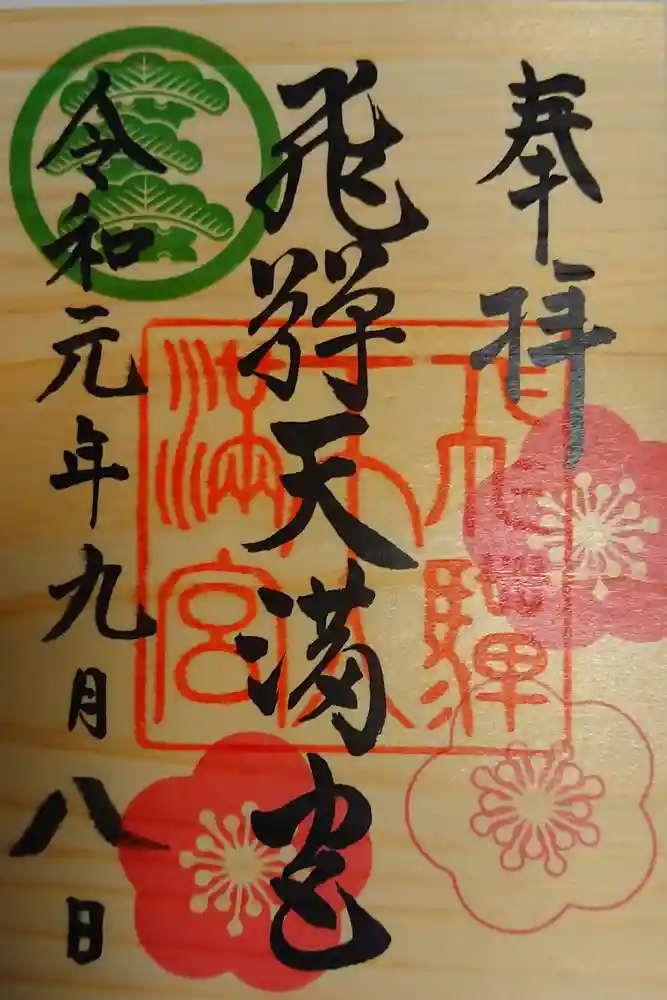 奉拝
飛騨天満宮
令和元年九月八日
飛騨天満宮